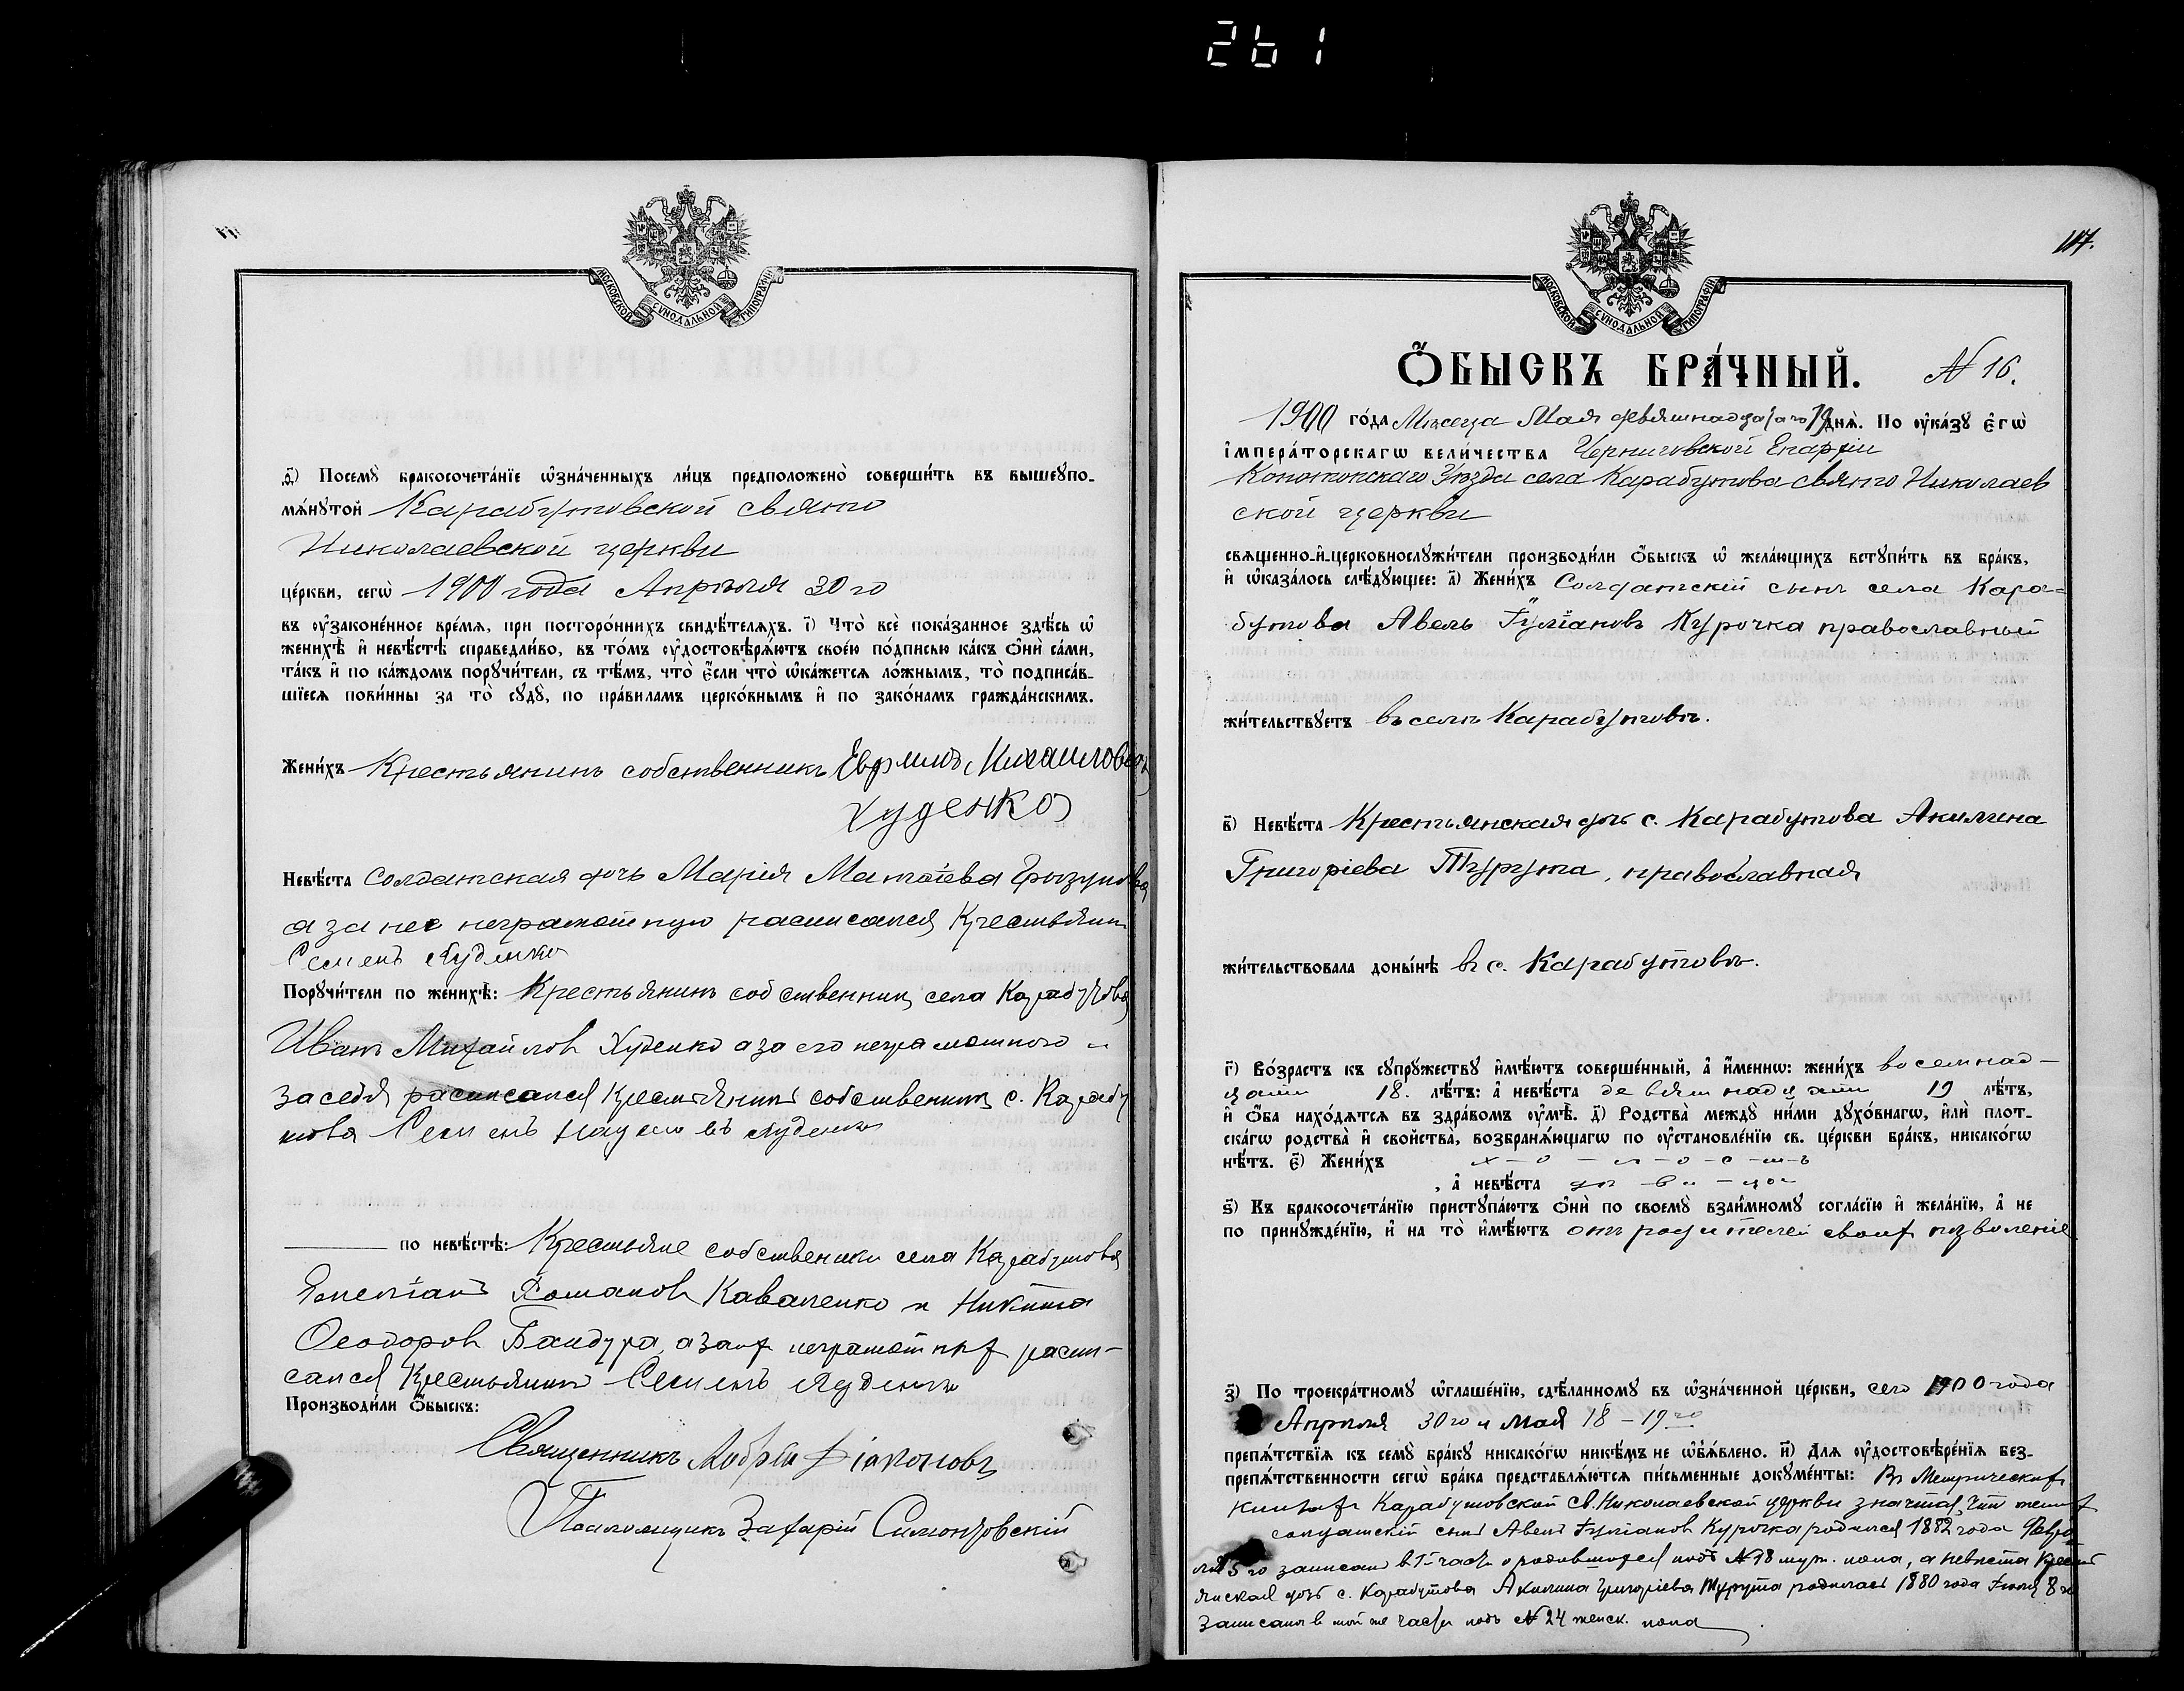 261
МОСКОВСКОЙ СѴНОДАЛЬНОЙ ТИПОГРАФІИ
д҃) Посемꙋ̀ бракосочета́нїе ѡ҆зна́ченныхъ ли́цъ предположено̀ соверши́ть въ вышеꙋпо-
мѧ́нꙋтой Карабутовской свято
Николаевской церкви
це́ркви, сегѡ̀ 1900 года Апрѣля 30 го
въ ᲂу҆зако́ненное вре́мѧ, при посторо́ннихъ свидѣ́телѧхъ. і҃) Что̀ всѐ пока́занное здѣ́сь ѡ҆
женихѣ̀ и҆ невѣ́стѣ справедли́во, въ то́мъ ᲂу҆достовѣрѧ́ютъ свое́ю по́дписью ка́къ ѻ҆нѝ са́ми,
та́къ и҆ по ка́ждомъ порꙋчи́тели, съ тѣ́мъ, что̀ є҆́сли что̀ ѡ҆ка́жется ло́жнымъ, то̀ подписа́в-
шїеся пови́нны за то̀ сꙋдꙋ̀, по пра́виламъ церко́внымъ и҆ по зако́намъ гражда́нскимъ.
Жени́хъ Крестьянинъ собственникъ Евфимъ Михаиловъ
Худенко
Невѣ́ста Солдатская дочь Марія Матѳіева
а за нее неграмотную расписался Крестьянин
Семенъ Худенко
Порꙋчи́тели по женихѣ̀: Крестьянинъ собственник села Карабутова
Иванъ Михайлов Худенко а за его неграмотного и
за себя расписался Крестьянинъ собственникъ с. Карабу
това Семенъ Наумовъ Худенко
по невѣ́стѣ: Крестьяне собственики села Карабутова
Емеліанъ Романов Каваленко и Никита
Ѳеодоров Бандура, а за их неграмотных распи-
сался Крестьянинъ Семенъ Худенко
Производи́ли ѻ҆́быскъ:
Священникъ Андрій Діаконовъ
Псаломщикъ Захарій Симонтовскій
117.
МОСКОВСКОЙ СѴНОДАЛЬНОЙ ТИПОГРАФІИ
Ѻ҆́БЫСКЪ БРА́ЧНЫЙ. № 16.
1900 го́да Мѣсяца Мая девятнадцатаго 19 днѧ̀. По ᲂу҆ка́зꙋ є҆гѡ̀
і҆мпера́торскагѡ вели́чества Черниговской Епархіи
Конотопскаго Уѣзда села Карабутова свято Николаев
ской церкви
свѧщенно-и҆-церковнослꙋжи́тели производи́ли ѻ҆́быскъ ѡ҆ жела́ющихъ встꙋпи́ть въ бра́къ,
и҆ ѡ҆каза́лось слѣ́дꙋющее: а҃) Жени́хъ Солдатскій сынъ села Кара=
бутова Авель Іуліановъ Курочка православный
жи́тельствꙋетъ въ селѣ Карабутовѣ.
в҃) Невѣ́ста Крестьянская дочь с. Карабутова Акилина
Григоріева Турута, православная
жи́тельствовала донынѣ въ с. Карабутовѣ.
г҃) Во́зрастъ къ сꙋпрꙋ́жествꙋ и҆мѣ́ютъ соверше́нный, а҆ и҆́меннѡ: жени́хъ восемнад-
цати 18. лѣ́тъ: а҆ невѣ́ста девятнадцати 19 лѣ́тъ,
и҆ ѻ҆́ба нахо́дятся въ здра́вомъ ᲂу҆мѣ̀. д҃) Родства̀ междꙋ̀ ни́ми дꙋхо́внагѡ, и҆лѝ плот-
ска́гѡ родства̀ и҆ сво́йства̀, возбранѧ́ющагѡ по ᲂу҆становле́нїю св. це́ркви бра́къ, никако́гѡ
нѣ́тъ. є҃) Жени́хъ х-о-л-о-с-т-ъ
, а҆ невѣ́ста дѣ-ви-ца
ѕ҃) Къ бракосочета́нїю пристꙋпа́ютъ ѻ҆нѝ по своемꙋ̀ взаи́мномꙋ согла́сїю и҆ жела́нїю, а҆ не
по принꙋжде́нїю, и҆ на то̀ и҆мѣ́ютъ отъ родителей своих позволеніе
з҃) По троекра́тномꙋ ѡ҆глаше́нїю, сдѣ́ланномꙋ въ ѡ҆зна́ченной це́ркви, сего 1900 года
Апрѣля 30 го и Мая 18 - 19 го
препѧ́тствїѧ къ семꙋ̀ бра́кꙋ никако́гѡ никѣ́мъ не ѡ҆б̾ѧ́влено. и҃) Длѧ ᲂу҆достовѣре́нїѧ без-
препѧ́тственности сегѡ̀ бра́ка представлѧ́ются пи́сьменные докꙋме́нты: Въ Метрических
книгах Карабутовской св. Николаевской церкви значится, что жених
солдатскій сынъ Авелъ Іуліанов Курочка родился 1882 года Февра
ля 5 го записан в 1-й части о родившихся подъ № 18 муж. пола, а невѣста Крестъ
янская дочь с. Карабутова Акилина Григоріева Турута родилась 1880 года Іюня 8 го
Записана в той же части подъ № 24 женск. пола